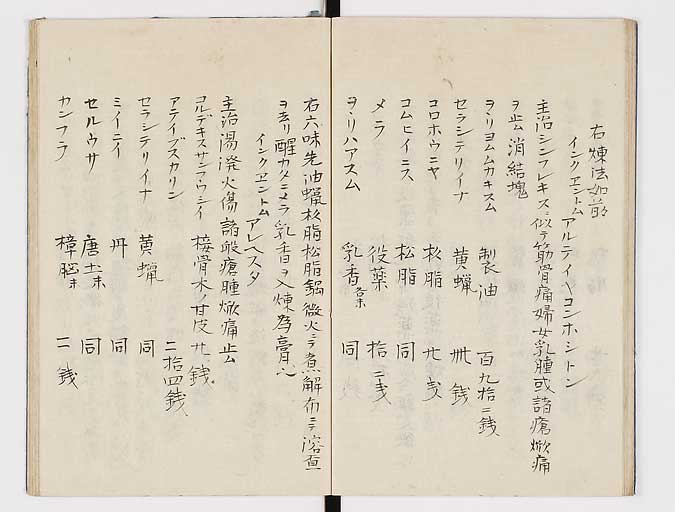 右煉法如前
インクエントム アルテイヤコンホシトン
主治シンフレキスニ似テ筋骨痛婦女乳腫或諸瘡焮痛
ヲ止ム消結塊
ヲヽリヨムムカキスム 製油 百九拾二銭
セラシテリイナ 黄蝋 卅銭
コロホウニヤ 松脂 廿戔
コムヒイニス 松脂 同
メラ 役薬 拾二戔
ヲヽリハアスム 乳香末 同
右六味先油蝋松脂松脂鍋微火ニテ煮解布ニテ
ヲ去リ醒カタニメラ乳香ヲ入煉為膏也
インクエントム アレヘスタ
主治湯溌火傷諸瘡腫焮痛止ム
コルデキスサンフウシイ 接骨木ノ甘皮 廿銭
アテイブスカリン 二拾四銭
セラシテリイナ 黄蝋 同
ミイニイ 丹 同
セルウサ 唐土末 同
カンフラ 樟脳末 一銭